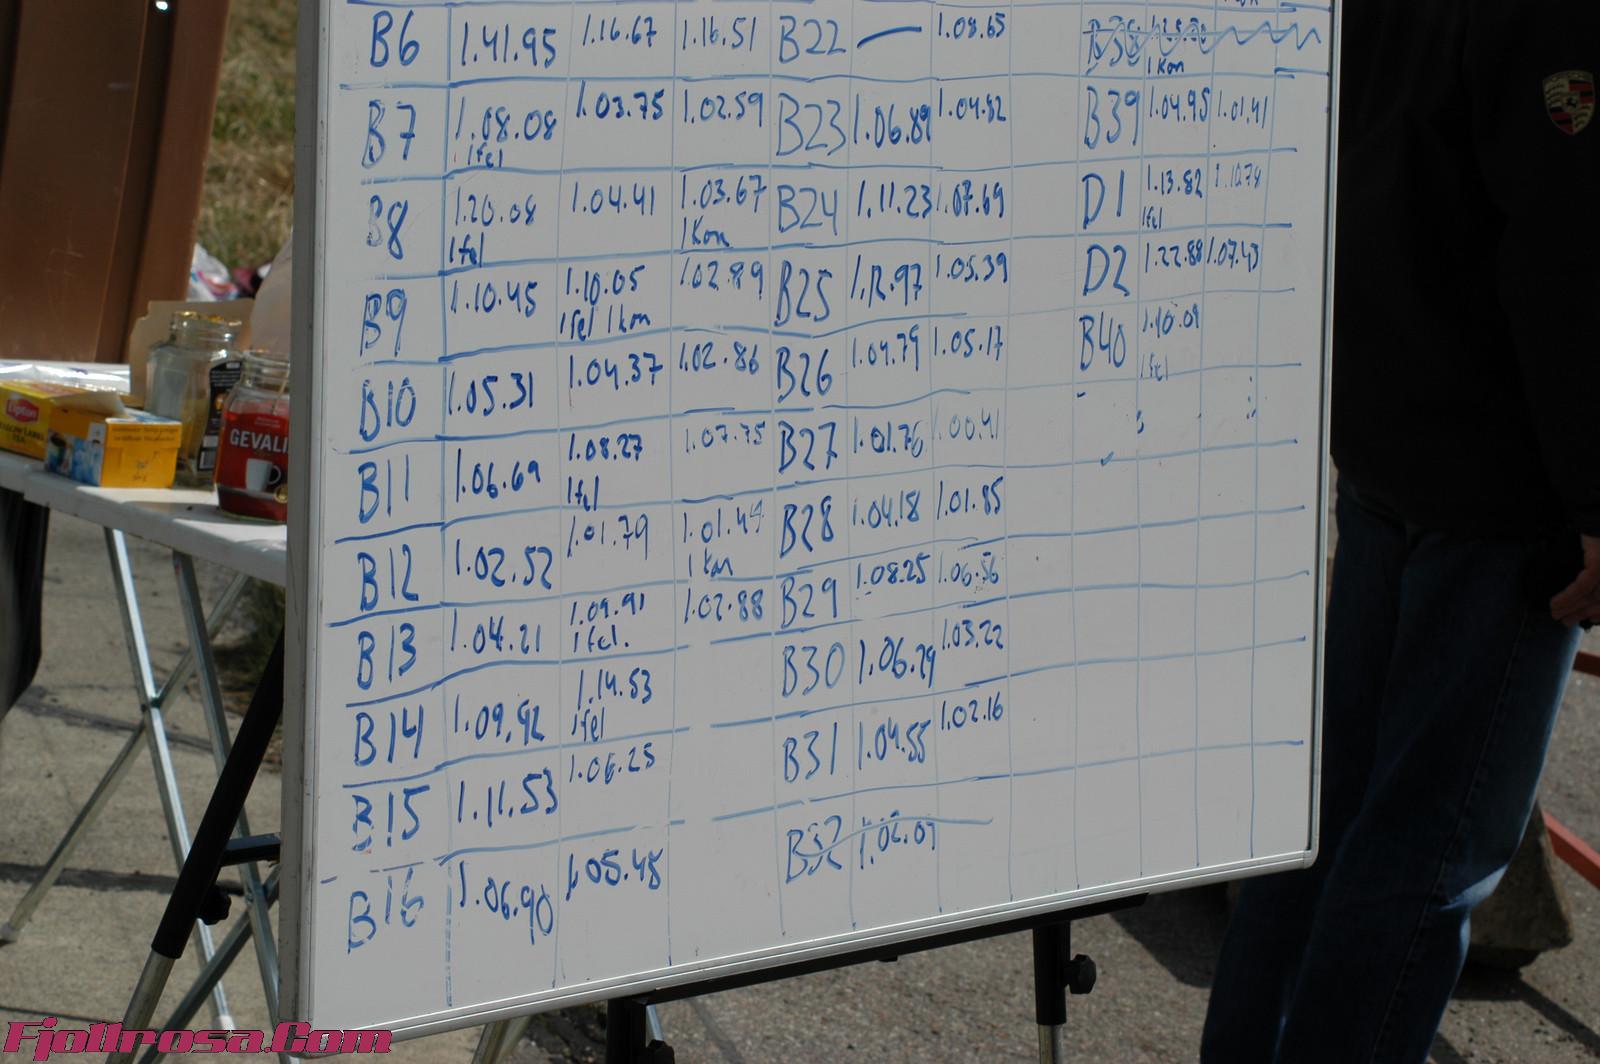 B6 1.41.95 1.16.67 1.16.51 B22 — 1.08.65
1 Kon
B7 1.08.08 1.03.75 1.02.59 B23 1.06.89 1.04.82 B39 1.04.95 1.01.41
1fel
B8 1.20.08 1.04.41 1.03.67 B24 1.11.23 1.07.69 D1 1.13.82
1fel 1Kon 1fel
B9 1.10.45 1.10.05 1.02.89 B25 1.12.97 1.05.39 D2 1.22.88 1.07.43
1fel 1kon
B10 1.05.31 1.04.37 1.02.86 B26 1.04.79 1.05.17 B40 1.10.09
1fel
B11 1.06.69 1.08.27 1.07.75 B27 1.01.76 1.00.41
1fel
B12 1.02.52 1.01.79 1.01.49 B28 1.04.18 1.01.85
1 kon
B13 1.04.21 1.09.91 1.02.88 B29 1.08.25 1.06.56
1fel.
B14 1.09.92 1.14.53 B30 1.06.29 1.03.22
1fel
B15 1.11.53 1.06.25 B31 1.04.55 1.02.16
B16 1.06.90 1.05.48 B32 1.06.07
Lipton
YELLOW LABEL
TEA
GEVALI
Fjollrosa.Com